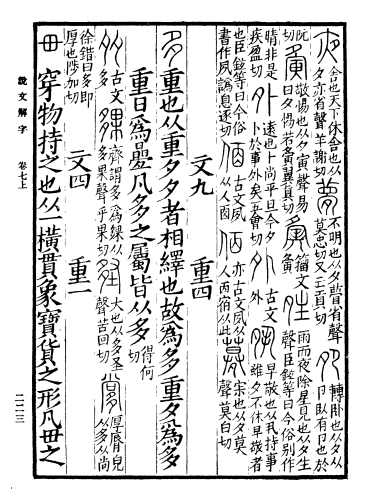 夜舍也天下休舍也从夕亦省聲羊謝切夢不明也从夕瞢省聲莫忠切又亡貢切夗轉臥也从夕从卪臥有卪也於
阮切夤敬惕也从夕寅聲易曰夕惕若夤翼真切籒文夤夝雨而夜除星見也从夕生聲臣鉉等曰今俗別作
晴非是疾盈切外遠也卜尚平旦今夕卜於事外矣五會切古文外𡖊早敬也从丮持事雖夕不休早敬者
也臣鉉等曰今俗書作夙譌息逐切古文夙从人㐁亦古文夙从人㐁宿从此𡖶宋也从夕莫聲莫白切
文九 重四
多重也从重夕夕者相繹也故爲多重夕爲多
重日爲曡凡多之屬皆从多得何切
古文多夥齊謂多爲夥从多果聲乎果切㚌大也从多圣聲苦回切𡖇厚脣皃从多从尚
徐鍇曰多即厚也陟加切 文四 重一
毌穿物持之也从一橫貫象寶貨之形凡毌之
說文解字 卷七上
二二三